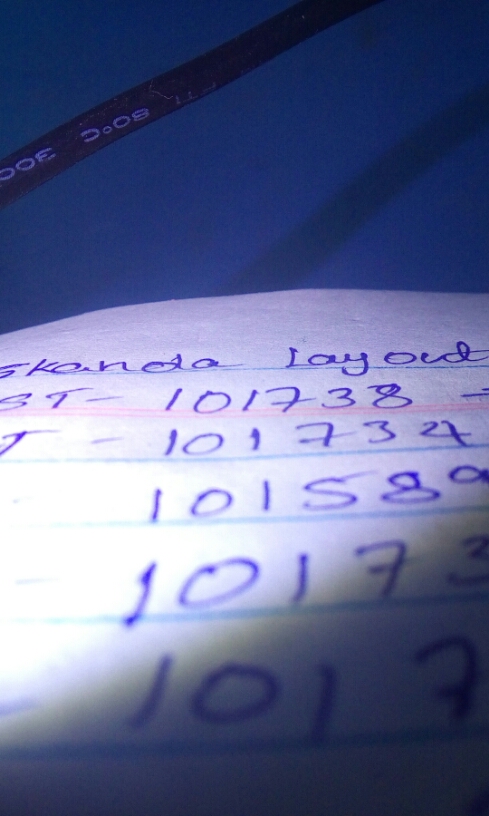 80°C 300
Skanda Layout
ST- 101738 -
T - 101734
- 101589
- 10173
- 1017